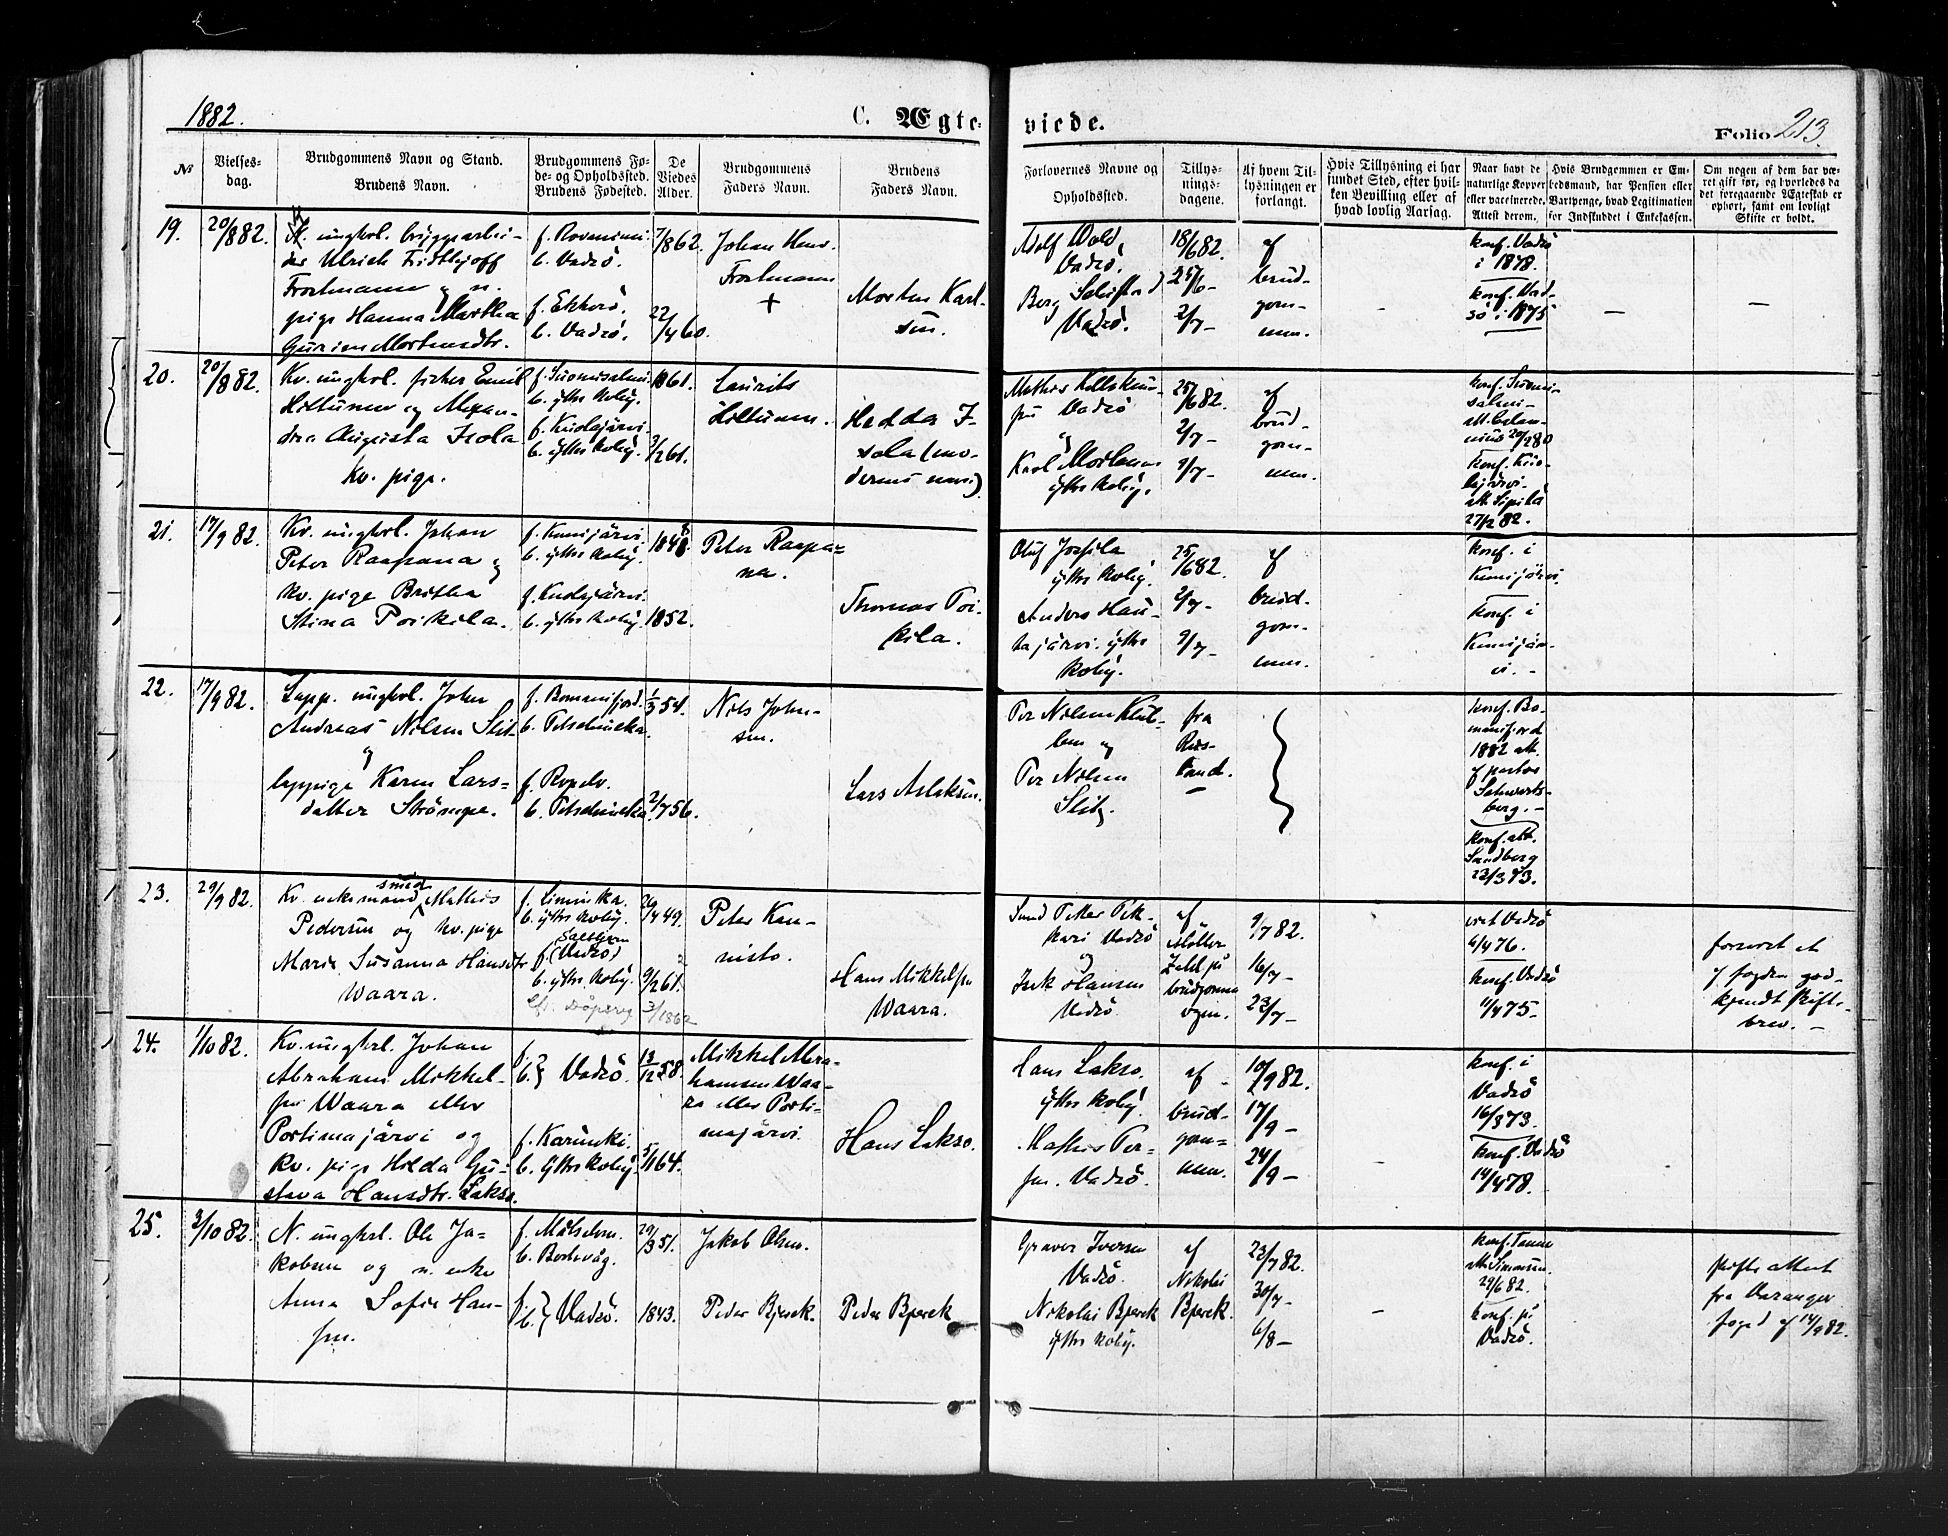 1882.
C. Ægte-
viede.
Folio 213.
№
Vielses-
dag.
Brudgommens Navn og Stand.
Brudens Navn.
Brudgommens Fø-
de- og Opholdssted.
Brudens Fødested.
De
Viedes
Alder.
Brudgommens
Faders Navn.
Brudens
Faders Navn.
Forlovernes Navne og
Opholdssted.
Tillys-
nings-
dagene.
Af hvem Til-
lysningen er
forlangt.
Hvis Tillysning ei har
fundet Sted, efter hvil-
ken Bevilling eller af
hvad lovlig Aarsag.
Naar havt de
naturlige Kopper
eller vaccinerede.
Attest derom.
Hvis Brudgommen er Em-
bedsmand, har Pension eller
Vartpenge, hvad Legitimation
for Indskuddet i Enkekassen.
Om nogen af dem har væ-
ret gift før, og hvorledes da
det foregaaende Ægteskab er
ophørt, samt om lovligt
Skifte er holdt.
19.
20/882.
ungkrl. bryggearbei-
der Ulrich Fridthjoff
Frostmann og n.
pige Hanna Martha
Gurine Mortensdtr.
f. Rovaniemi
b. Vadsö.
f. Ekkerö.
b. Vadsö.
7/862.
22/460.
Johan Henr.
Frostmann
+
Morten Karl-
sen.
Adolf Wold
Vadsö.
Berg
Vadsö.
18/682.
25/6-
2/7-
af
brud-
gom-
men.
-
konf. Vadsö
i 1878.
konf. Vad-
sö i 1875
-
-
20.
20/882.
Kv. ungkrl. fisker Emil
Hiltunen og Alexan-
dra Augusta Isola
kv. pige.
f. Suomisalmi
b. yttre Kvby.
f. Kuolajärvi.
b. yttre Kvby.
1861.
2/261.
Laurits
Hiltunen.
Hedda I-
sola (mo-
derens navn).
Vadsö
Karl Mortensen
yttre Kvby.
25/682.
2/7-
9/7-
af
brud-
gom-
men.
konf. Suomi-
salmi-
att. Calam-
nius 20/280
konf. Kuo-
lajärvi-
att. Sipilä
27/282.
21.
17/982.
Kv. ungkrl. Johan
Peter Raapana og
kv. pige Britha
Stina Poikila.
f. Kemijärvi
b. yttre Kvby.
f. Kuolajärvi.
b. yttre Kvby.
1848
1852.
Peter Raapa-
na.
Thomas Poi-
kila.
Oluf Josfila
yttre Kvby.
Anders Hau-
tajärvi. yttre
Kvby.
25/682.
2/7-
9/7-
af
brud-
gom-
men.
konf. i
Kemijärvi.
konf. i
Kemijär-
vi. -
22.
17/982.
Lapp. ungkrl. John
Andreas Nilsen Slit
og
lappige Karen Lars-
datter Strömpe.
f. Bomanifjord.
b. Petschenka.
f. Bopelv.
b. Petschenka
1/354.
2/756.
Nils John-
sen.
Lars Aslaksen.
Per Nilsen Klub-
ben og
Per Nilsen
Slit.
fra
Rus-
land.
konf. Bo-
manifjord
1882 att.
af pastor
Schwarts-
berg.-
konf. att.
Sandberg
23/373.
23.
29/982.
Kv. enkemand smed Mathis
Pedersen og kv. pige
Maria Susanna Hansdtr
Waara.
f. Liminka.
b. yttre Kvby.
f. (Vadsö)
b. yttre Kvby.
26/449.
9/261.
3/1862
Peter Kan-
nisto.
Hans Mikkelsen
Waara.
Smed Petter Pek-
kari Vadsö
og
Isak Hansen
Vadsö.
af
Møller
Feldt på
brudgommens
vegne.
9/782.
16/7-
23/7-
viet Vadsö
9/476.
konf. Vadsö
11/475.
foreviet et
af fogden god-
kjendt skift-
brev. -
24.
1/1082.
Kv. ungkrl. Johan
Abraham Mikkel-
sen Waara eller
Portimajärvi og
kv. pige Hilda Gu-
stava Hansdtr. Lakso.
f.
b. } Vadsö.
f. Karunki.
b. yttre Kvby.
13/1258.
5/164.
Mikkel Abra-
hamsen Waa-
ra eller Porti-
majärvi.
Hans Lakso.
Hans Lakso.
yttre Kvby.
Mathis Per-
sen. Vadsö.
af
brud-
gom-
men.
10/982.
17/9-
24/9-
konf. i
Vadsö
16/373.
konf. Vadsö
14/478.
25.
3/1082.
N. ungkrl. Ole Ja-
kobsen og n. enke
Anna Sofie Han-
sen.
f. Målselven.
b. Bodevåg.
f.
b. } Vadsö.
29/351.
1843.
Jakob Olsen.
Peder Bjerek.
Peder Bjerek
Graver Iversen
Vadsö.
Nikolai Bjerek
yttre Kvby.
af
Nikolai
Bjerek.
23/782.
30/7-
6/8-
-
konf. Tanen
att. Simonsen.
29/682.
konf. på
Vadsö.
skifte attest
fra Varanger
foged af 14/982.